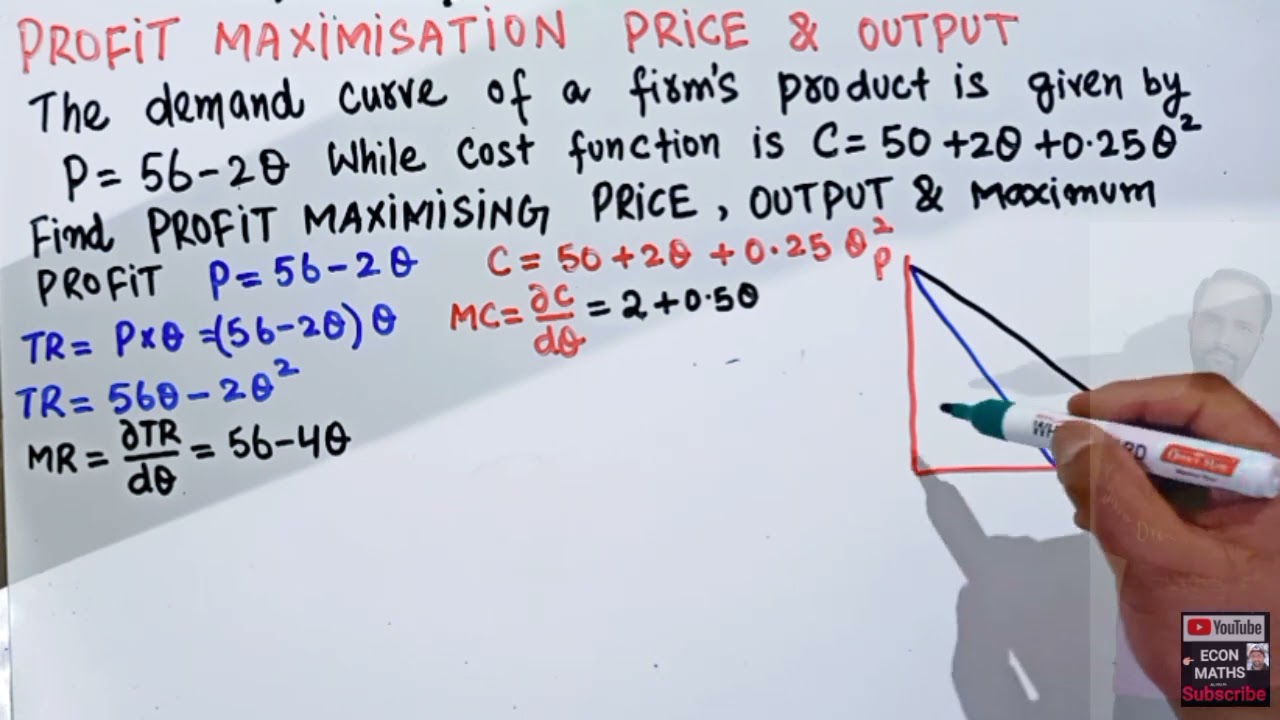 PROFIT MAXIMISATION PRICE & OUTPUT
The demand curve of a firm's product is given by
P = 56 - 2θ While cost function is C = 50 + 2θ + 0.25θ²
Find PROFIT MAXIMISING PRICE, OUTPUT & Maximum
PROFIT P = 56 - 2θ C = 50 + 2θ + 0.25θ²
P
TR = P×θ = (56-2θ)θ MC = ∂C/dθ = 2 + 0.5θ
TR = 56θ - 2θ²
MR = ∂TR/dθ = 56 - 4θ
YouTube
ECON
MATHS
Subscribe